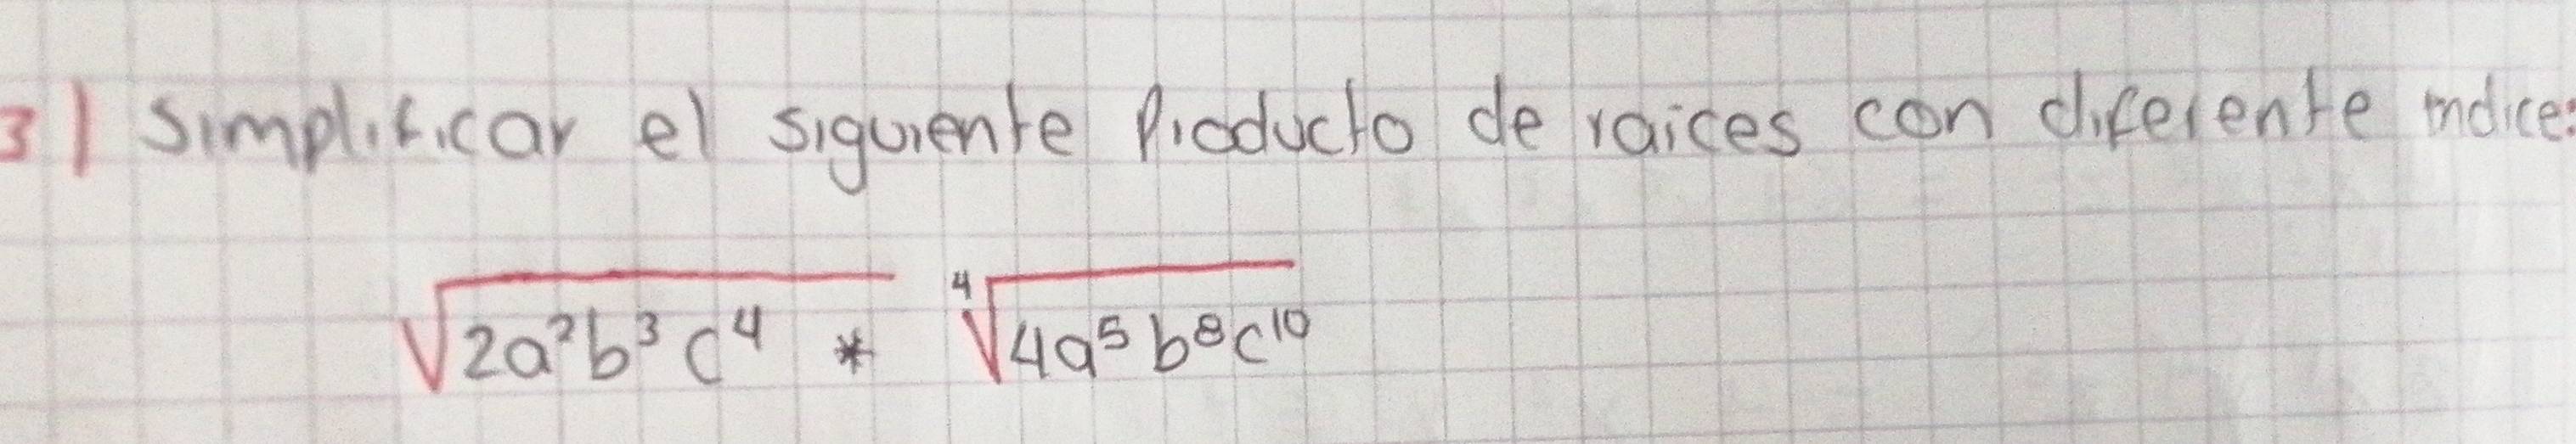 3| Simplificar el siguiente Producto de raices con diferente indices
√2a²b³c⁴ * ⁴√4a⁵b⁸c¹⁰